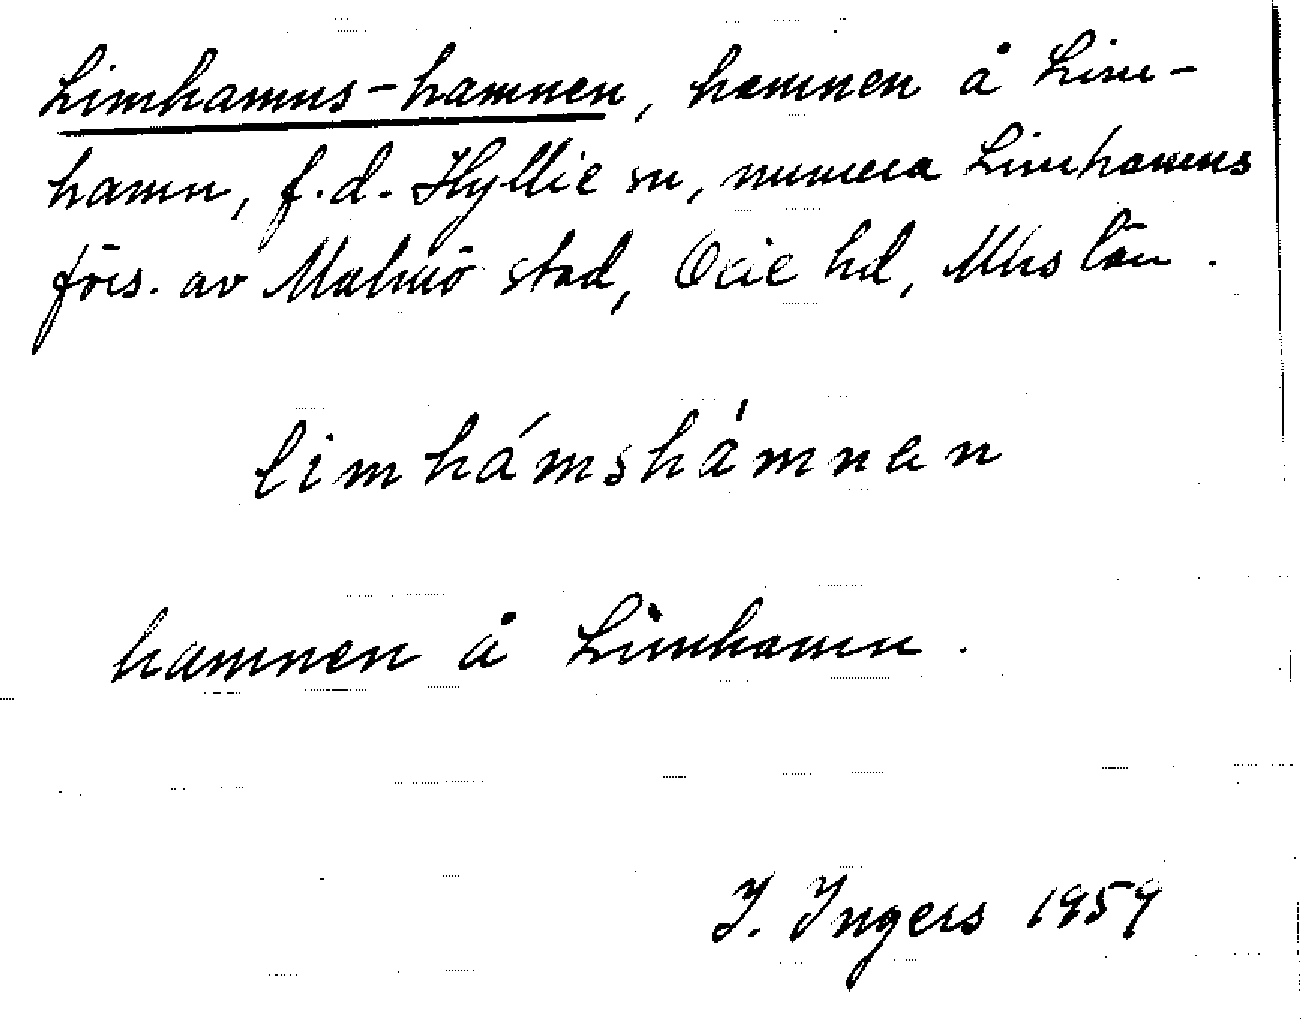 Limhamns-hamnen, hamnen å Lim-
hamn, f.d. Hyllie sn, numera Limhamns
förs. av Malmö stad, Oxie hd, Mhs län.
limhámshàmnan
hamnen å Limhamn.
I. Ingers 1959